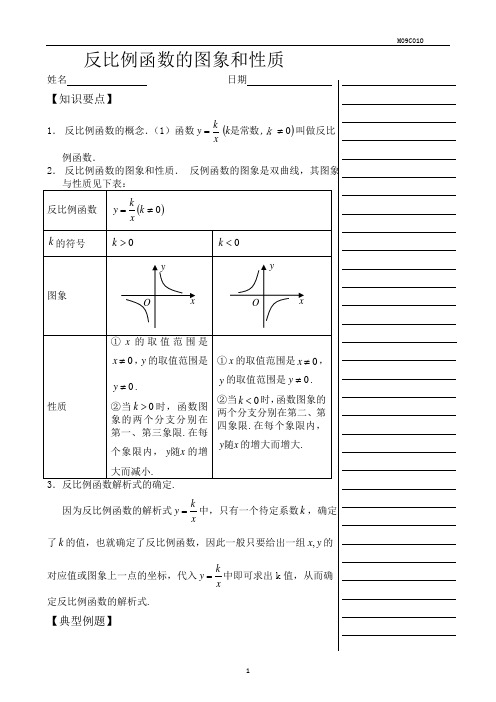 M09C010
反比例函数的图象和性质
姓名 日期
【知识要点】
1. 反比例函数的概念.(1)函数 y = k/x (k是常数, k ≠ 0)叫做反比
例函数.
2. 反比例函数的图象和性质. 反例函数的图象是双曲线,其图象
与性质见下表:
反比例函数
y = k/x (k ≠ 0)
k 的符号
k > 0
k < 0
图象
y
O
x
y
O
x
性质
① x 的取值范围是
x ≠ 0,y 的取值范围是
y ≠ 0.
②当 k > 0 时,函数图
象的两个分支分别在
第一、第三象限.在每
个象限内,y随x 的增
大而减小.
① x 的取值范围是 x ≠ 0,
y 的取值范围是 y ≠ 0.
②当 k < 0 时,函数图象的
两个分支分别在第二、第
四象限.在每个象限内,
y随x 的增大而增大.
3.反比例函数解析式的确定.
因为反比例函数的解析式 y = k/x 中,只有一个待定系数 k,确定
了 k 的值,也就确定了反比例函数,因此一般只要给出一组 x, y 的
对应值或图象上一点的坐标,代入 y = k/x 中即可求出 k 值,从而确
定反比例函数的解析式.
【典型例题】
1